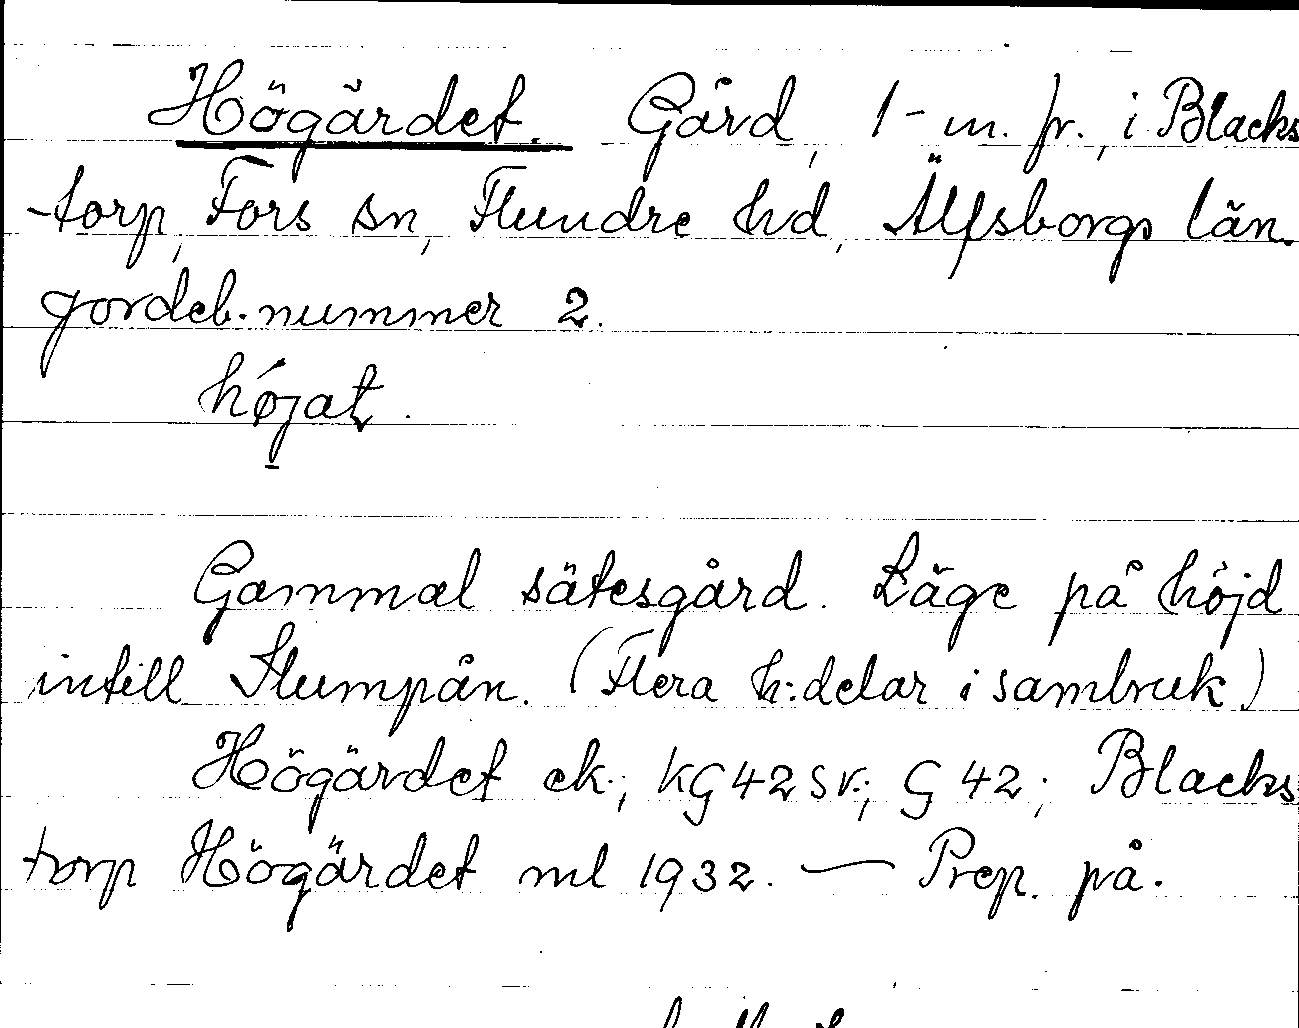 Högärdet. Gård, 1-m. fr., i Blacks
-torp, Fors sn, Flundre hd, Älfsborgs län.
Jordeb. nummer 2.
højat.
Gammal sätesgård. Läge på höjd
intill Slumpån. (Flera h:delar i sambruk)
Högärdet ek.; KG 42 SV.; G 42; Blacks
torp Högärdet ml 1932. — Prep. på.